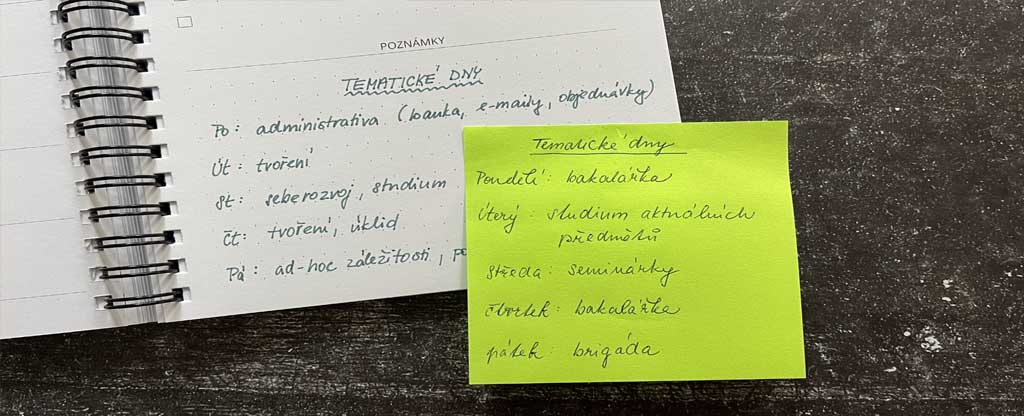 POZNÁMKY
TEMATICKÉ DNY
Po: administrativa (banka, e-maily, objednávky)
Út: tvoření
st: seberozvoj, studium
čt: tvoření, úklid
Pá: ad-hoc záležitosti,
Tematické dny
Pondělí: bakalářka
Úterý: studium aktuálních
předmětů
středa: seminárky
čtvrtek: bakalářka
pátek: brigáda